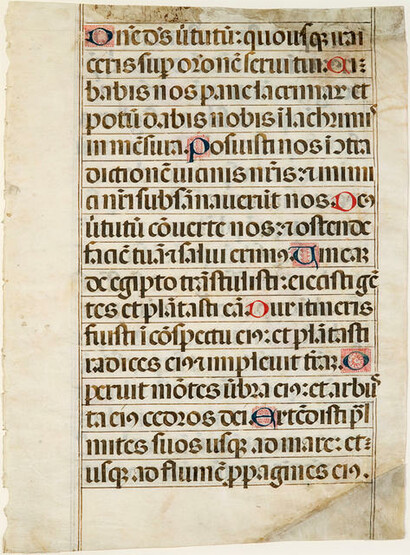 Dn̄e d̄s ūtutū: quousq̄ irai
ceris sup oronē serui tui. Ci:
babis nos pane lacrimaꝝ et
potū dabis nobis ī lachrimis
in mēsura. Posuisti nos ī 9tra
dictionē uicinis nr̄is: ⁊ inimi
ci nr̄i subsānauerūt nos. De9
ūtutū cōuerte nos: ⁊ ostende
faciē tuā ⁊ salui erim9. Uineā
de egipto trāstulisti: eiecisti gē
tes et plātasti eā. Dux itineris
fuisti ī cōspectu ei9: et plātasti
radices ei9 ⁊ impleuit t̄rā. O
peruit mōtes ūbra ei9: et arbus
ta ei9 cedros dei. Extēdisti pal
mites suos usq̄ ad mare: et:
usq̄ ad flumē ꝓpagines ei9.